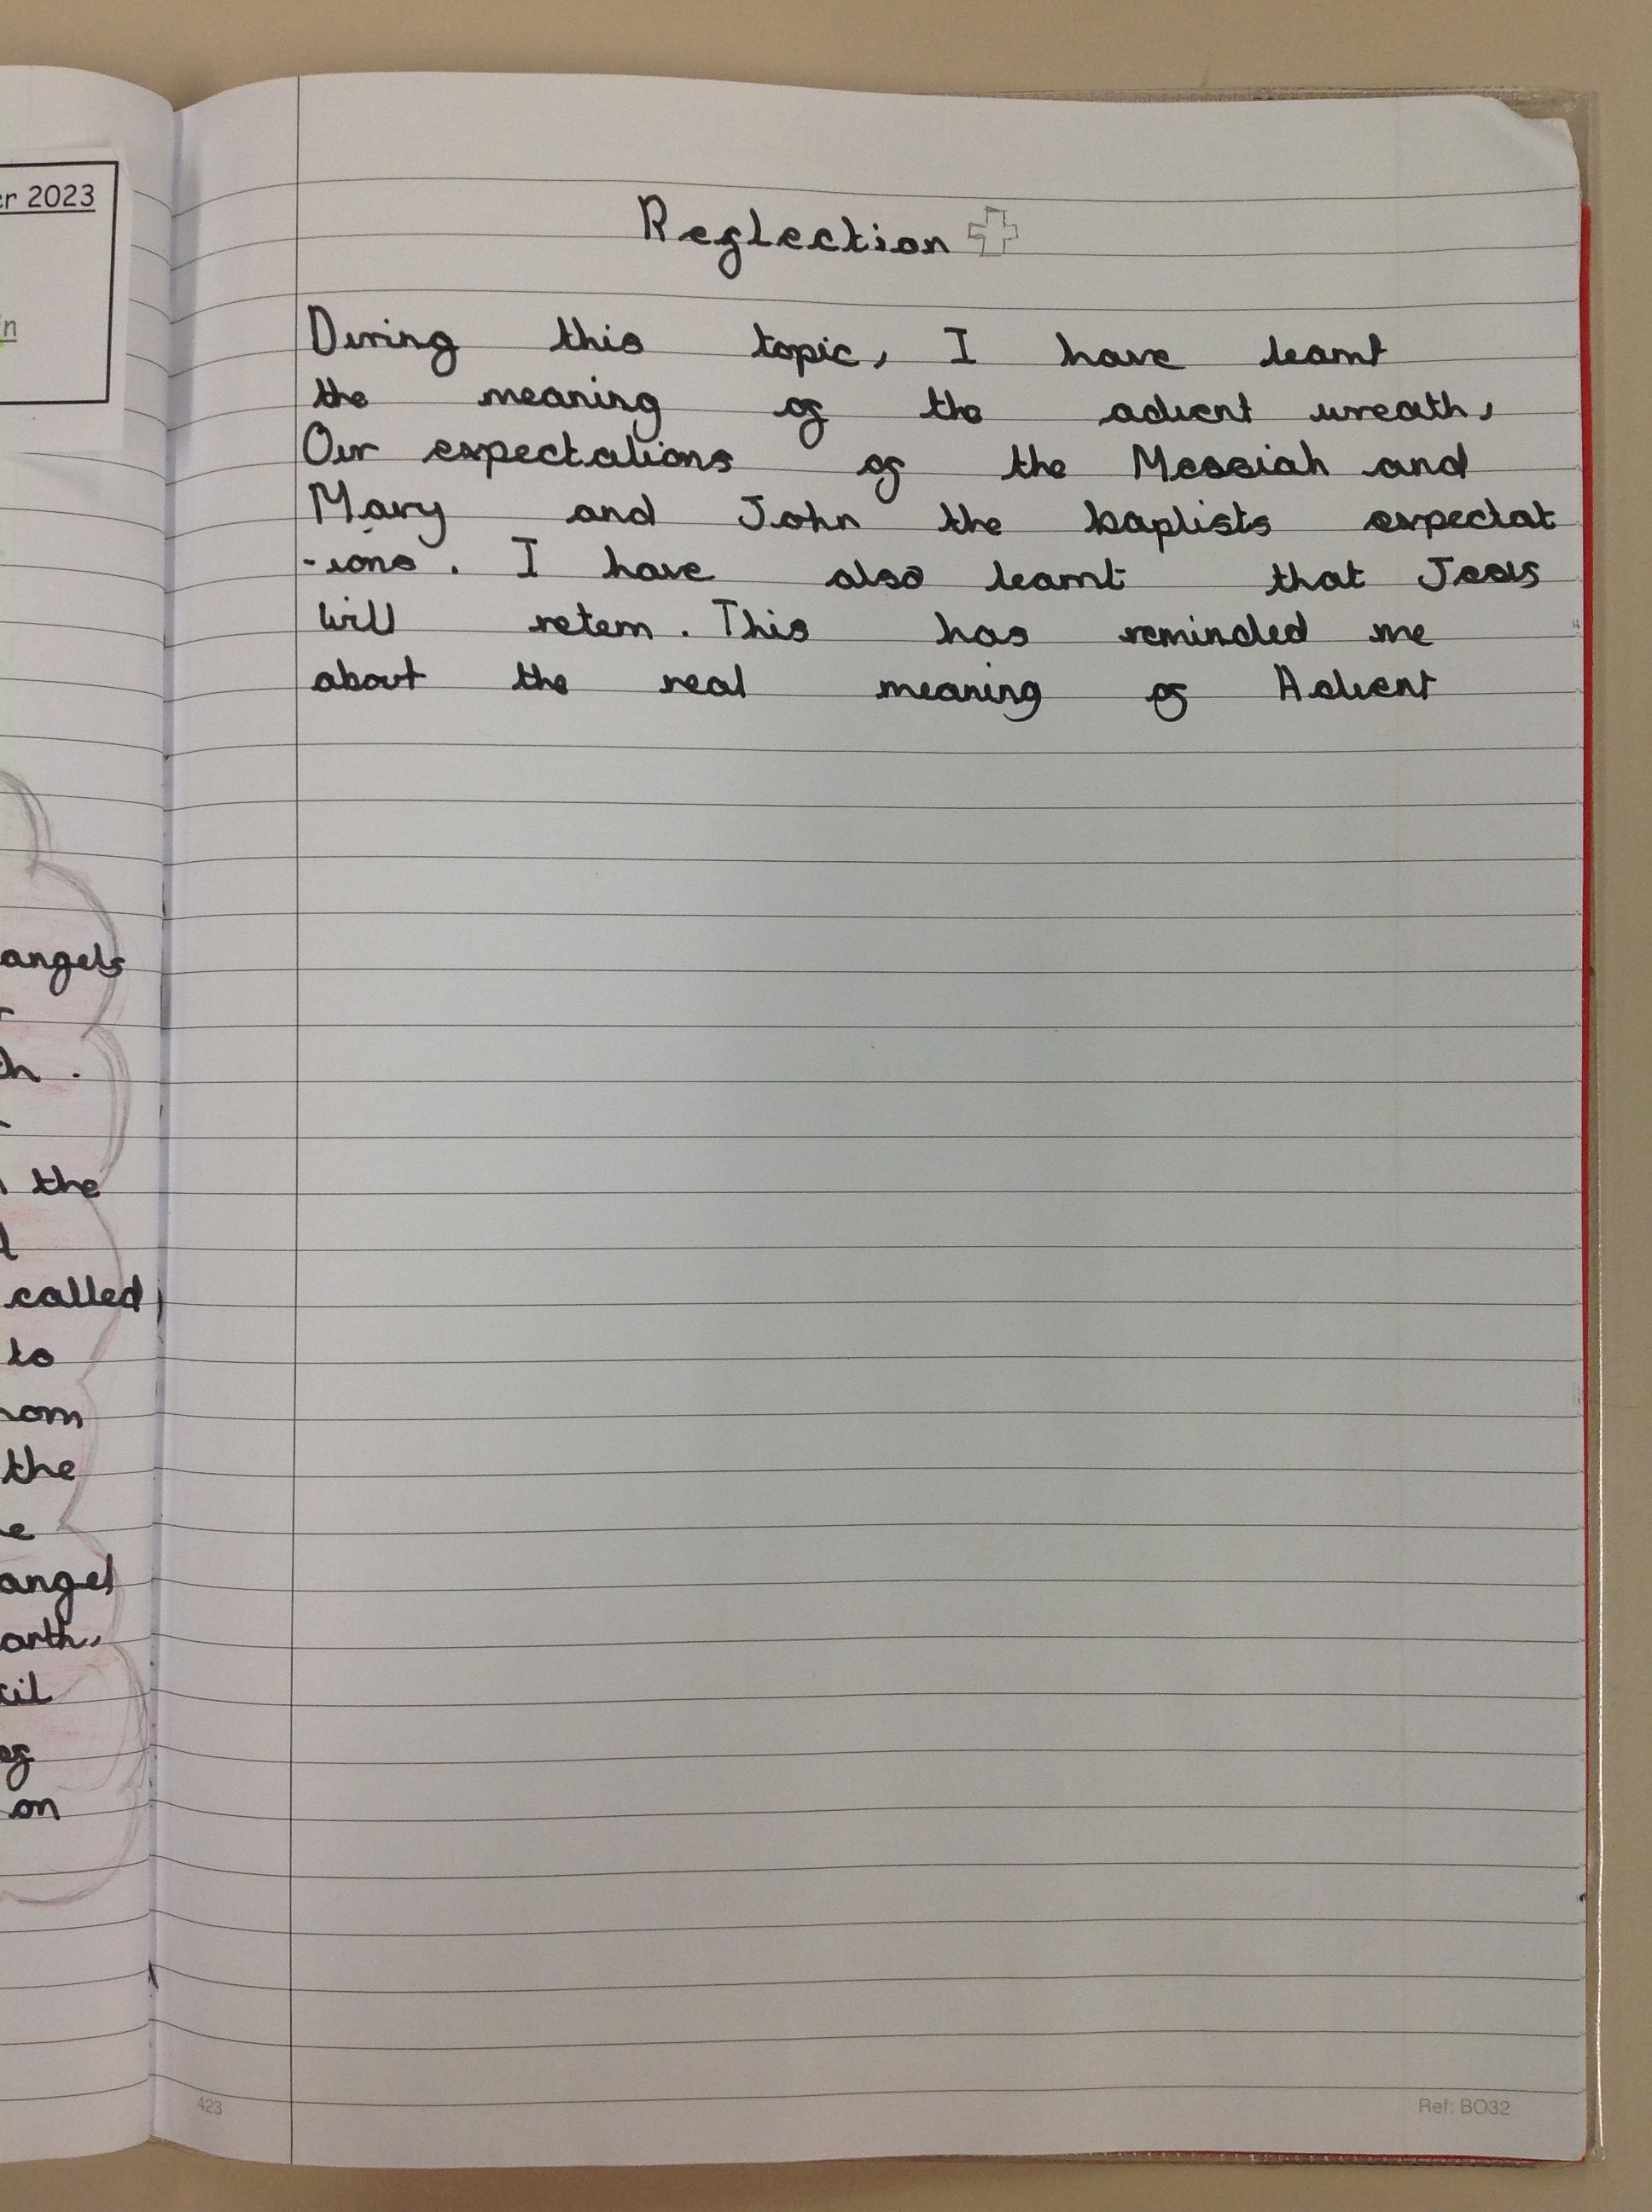 er 2023
Reflection
During this topic, I have learnt
the meaning of the advent wreath,
Our expectations of the Messiah and
Mary and John the baptists expectat
-ions. I have also learnt that Jesus
will retern. This has reminded me
about the real meaning of Advent
angels
the
called,
to
the
angel
on
423
Ref: BO32